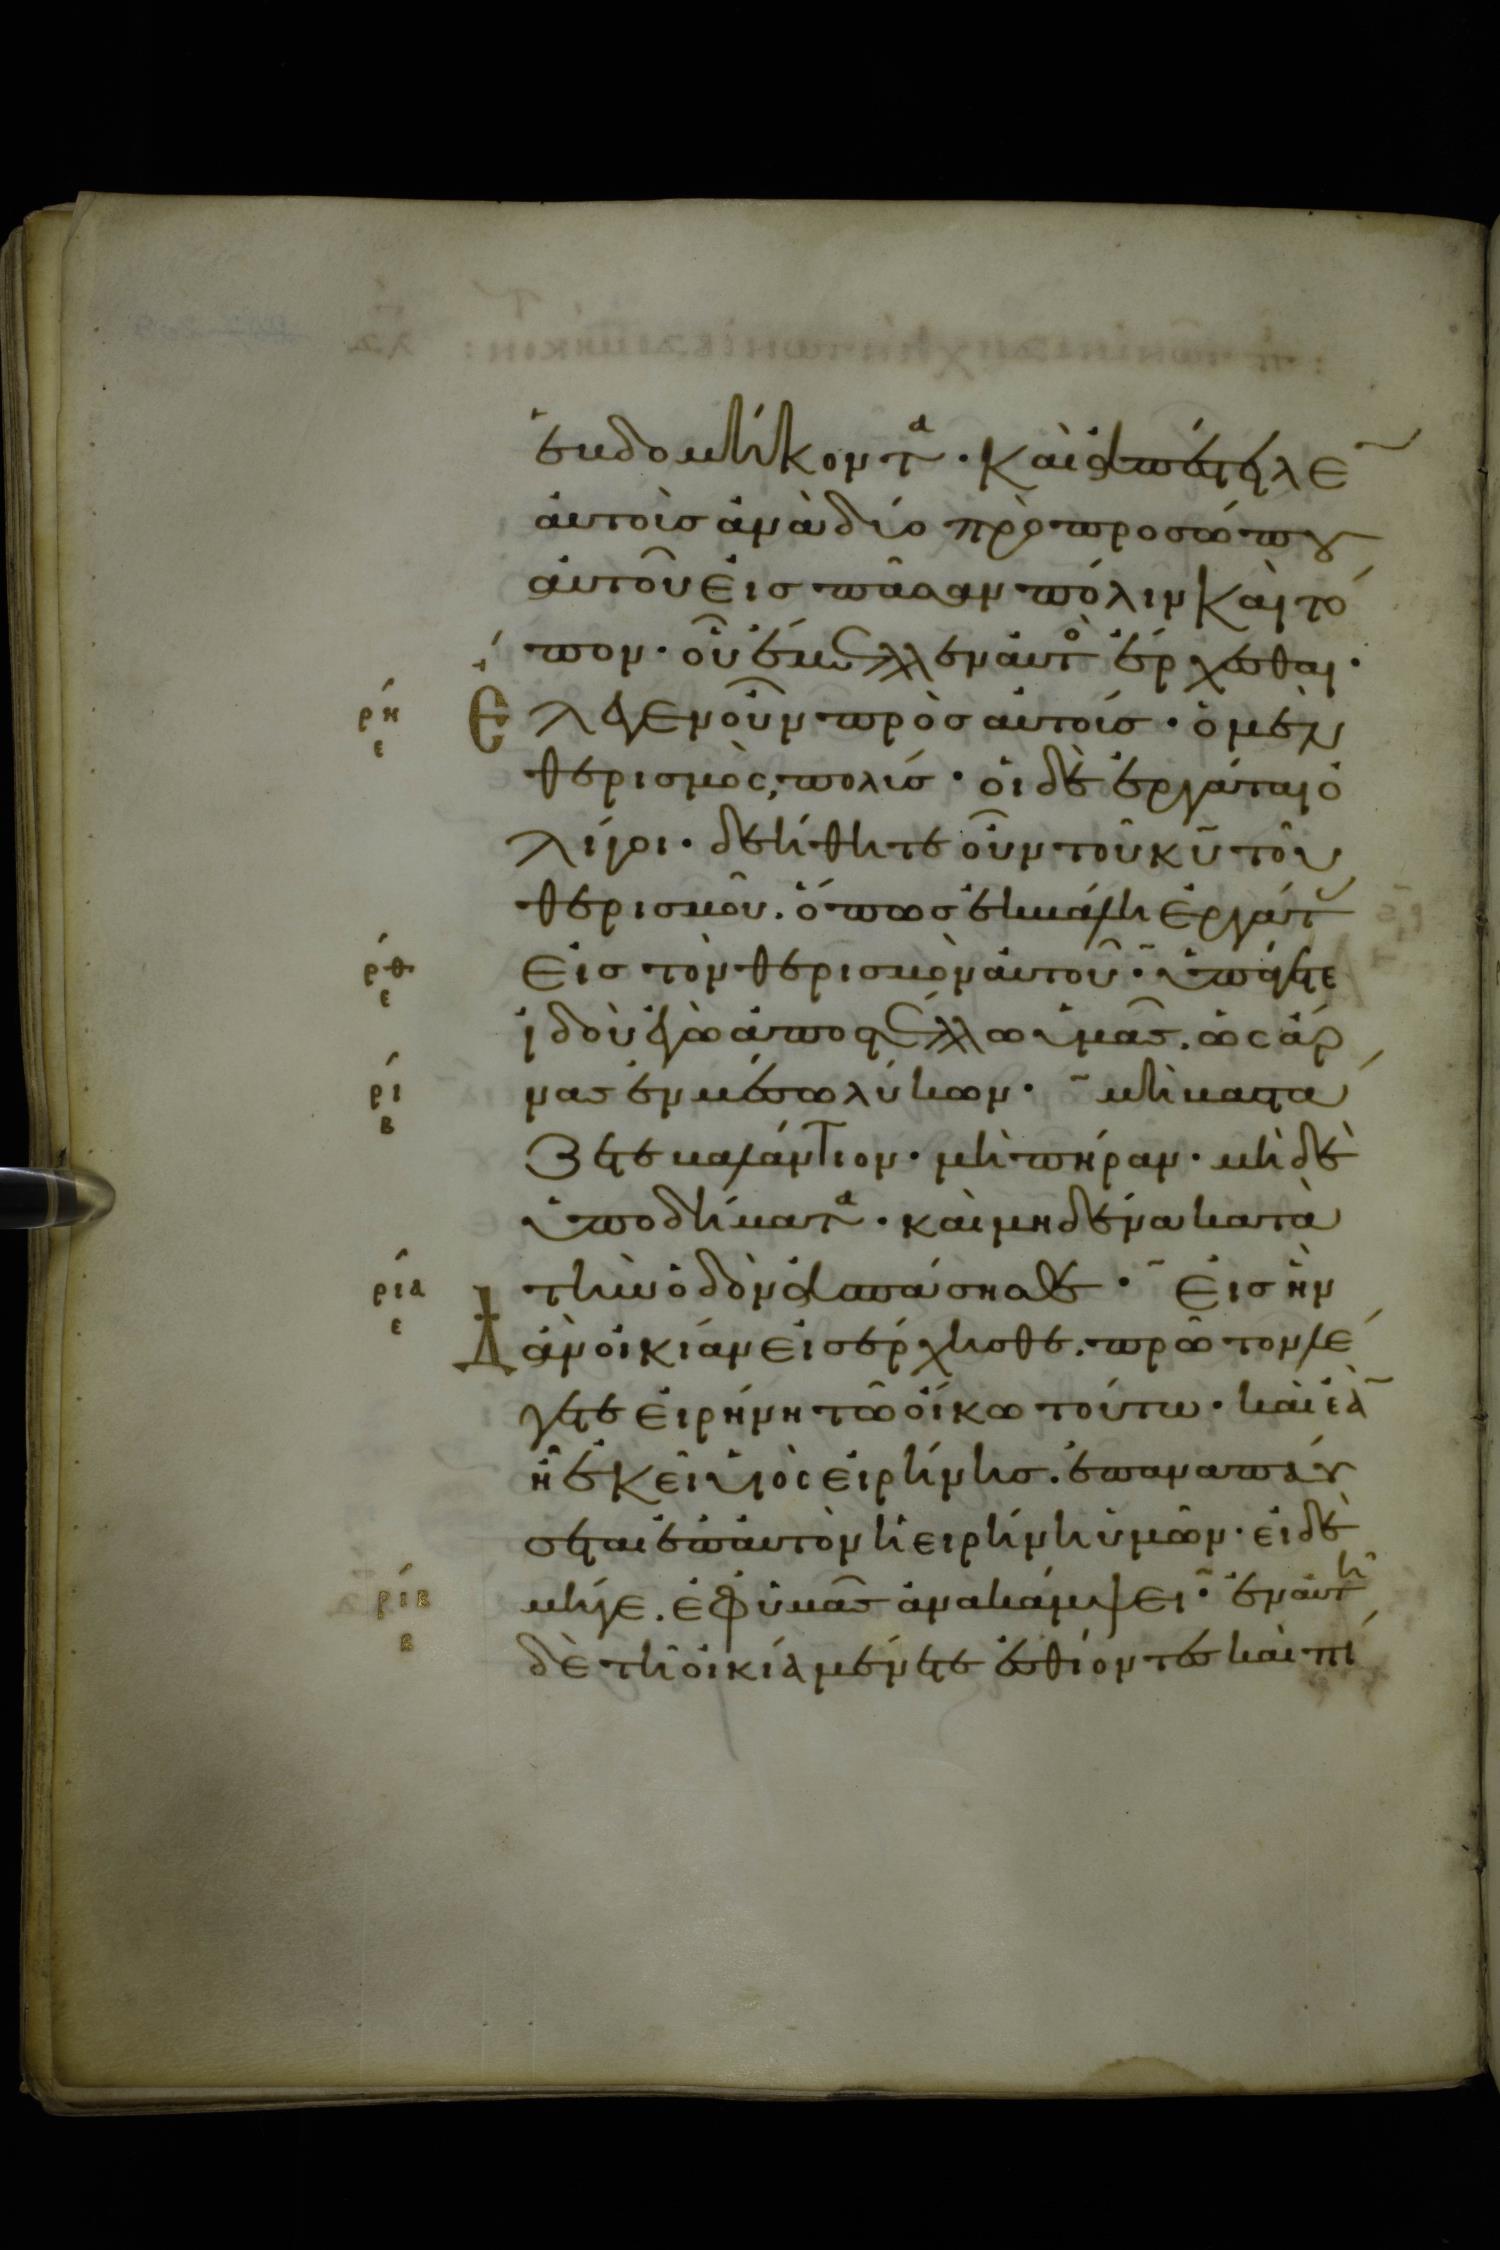 ἑυδομήκοντα · καὶ ἀπέστειλε
αὐτοὶσ ἀνὰ δύο πρὸ προσώπου
αὐτοῦ εἰσ πᾶσαν πόλιν καὶ τό
πον · οὗ ἔμελλεν αὐτὸσ ἔρχεσθαι ·
ρη ε Ἔλεγεν οὖν πρὸσ αὐτοὺσ · ὁ μὲν
θερισμὸς, πολύσ · οἱ δὲ ἐργάται ὀ
λίγοι · δεήθητε οὖν τοῦ κῦ τοῦ
θερισμοῦ . ὅπωσ ἐκβάλη ἐργάτ
ρθ ε εἰσ τὸν θερισμὸν αὐτοῦ · ὑπάγετε
ἰδοὺ ἐγὼ ἀποστέλλω ὑμᾶσ . ὡς ἄρ
ρι β νασ ἐν μέσω λύκων · μὴ βαστά
ζετε βαλάντιον · μὴ πήραν · μὴ δὲ
ὑποδήματα · καὶ μηδένα κατὰ
ρια ε τὴν ὁδὸν ἀσπάσησθε · Εἰσ ἣν
Δ ἂν οἰκίαν εἰσέρχησθε . πρῶτον λέ
γετε εἰρήνη τῶ οἴκω τούτω · καὶ ἐὰ
ἦ ἐκεῖ υἱὸς εἰρήνησ . ἐπαναπαύ
σεται ἐπ' αὐτὸν ἡ εἰρήνη ὑμῶν · εἰ δὲ
ριβ β μήγε . ἐφ' ὑμᾶσ ἀνακάμψει · ἐν αὐτῆ
δὲ τῆ οἰκία μένετε ἐσθίοντεσ καὶ πί